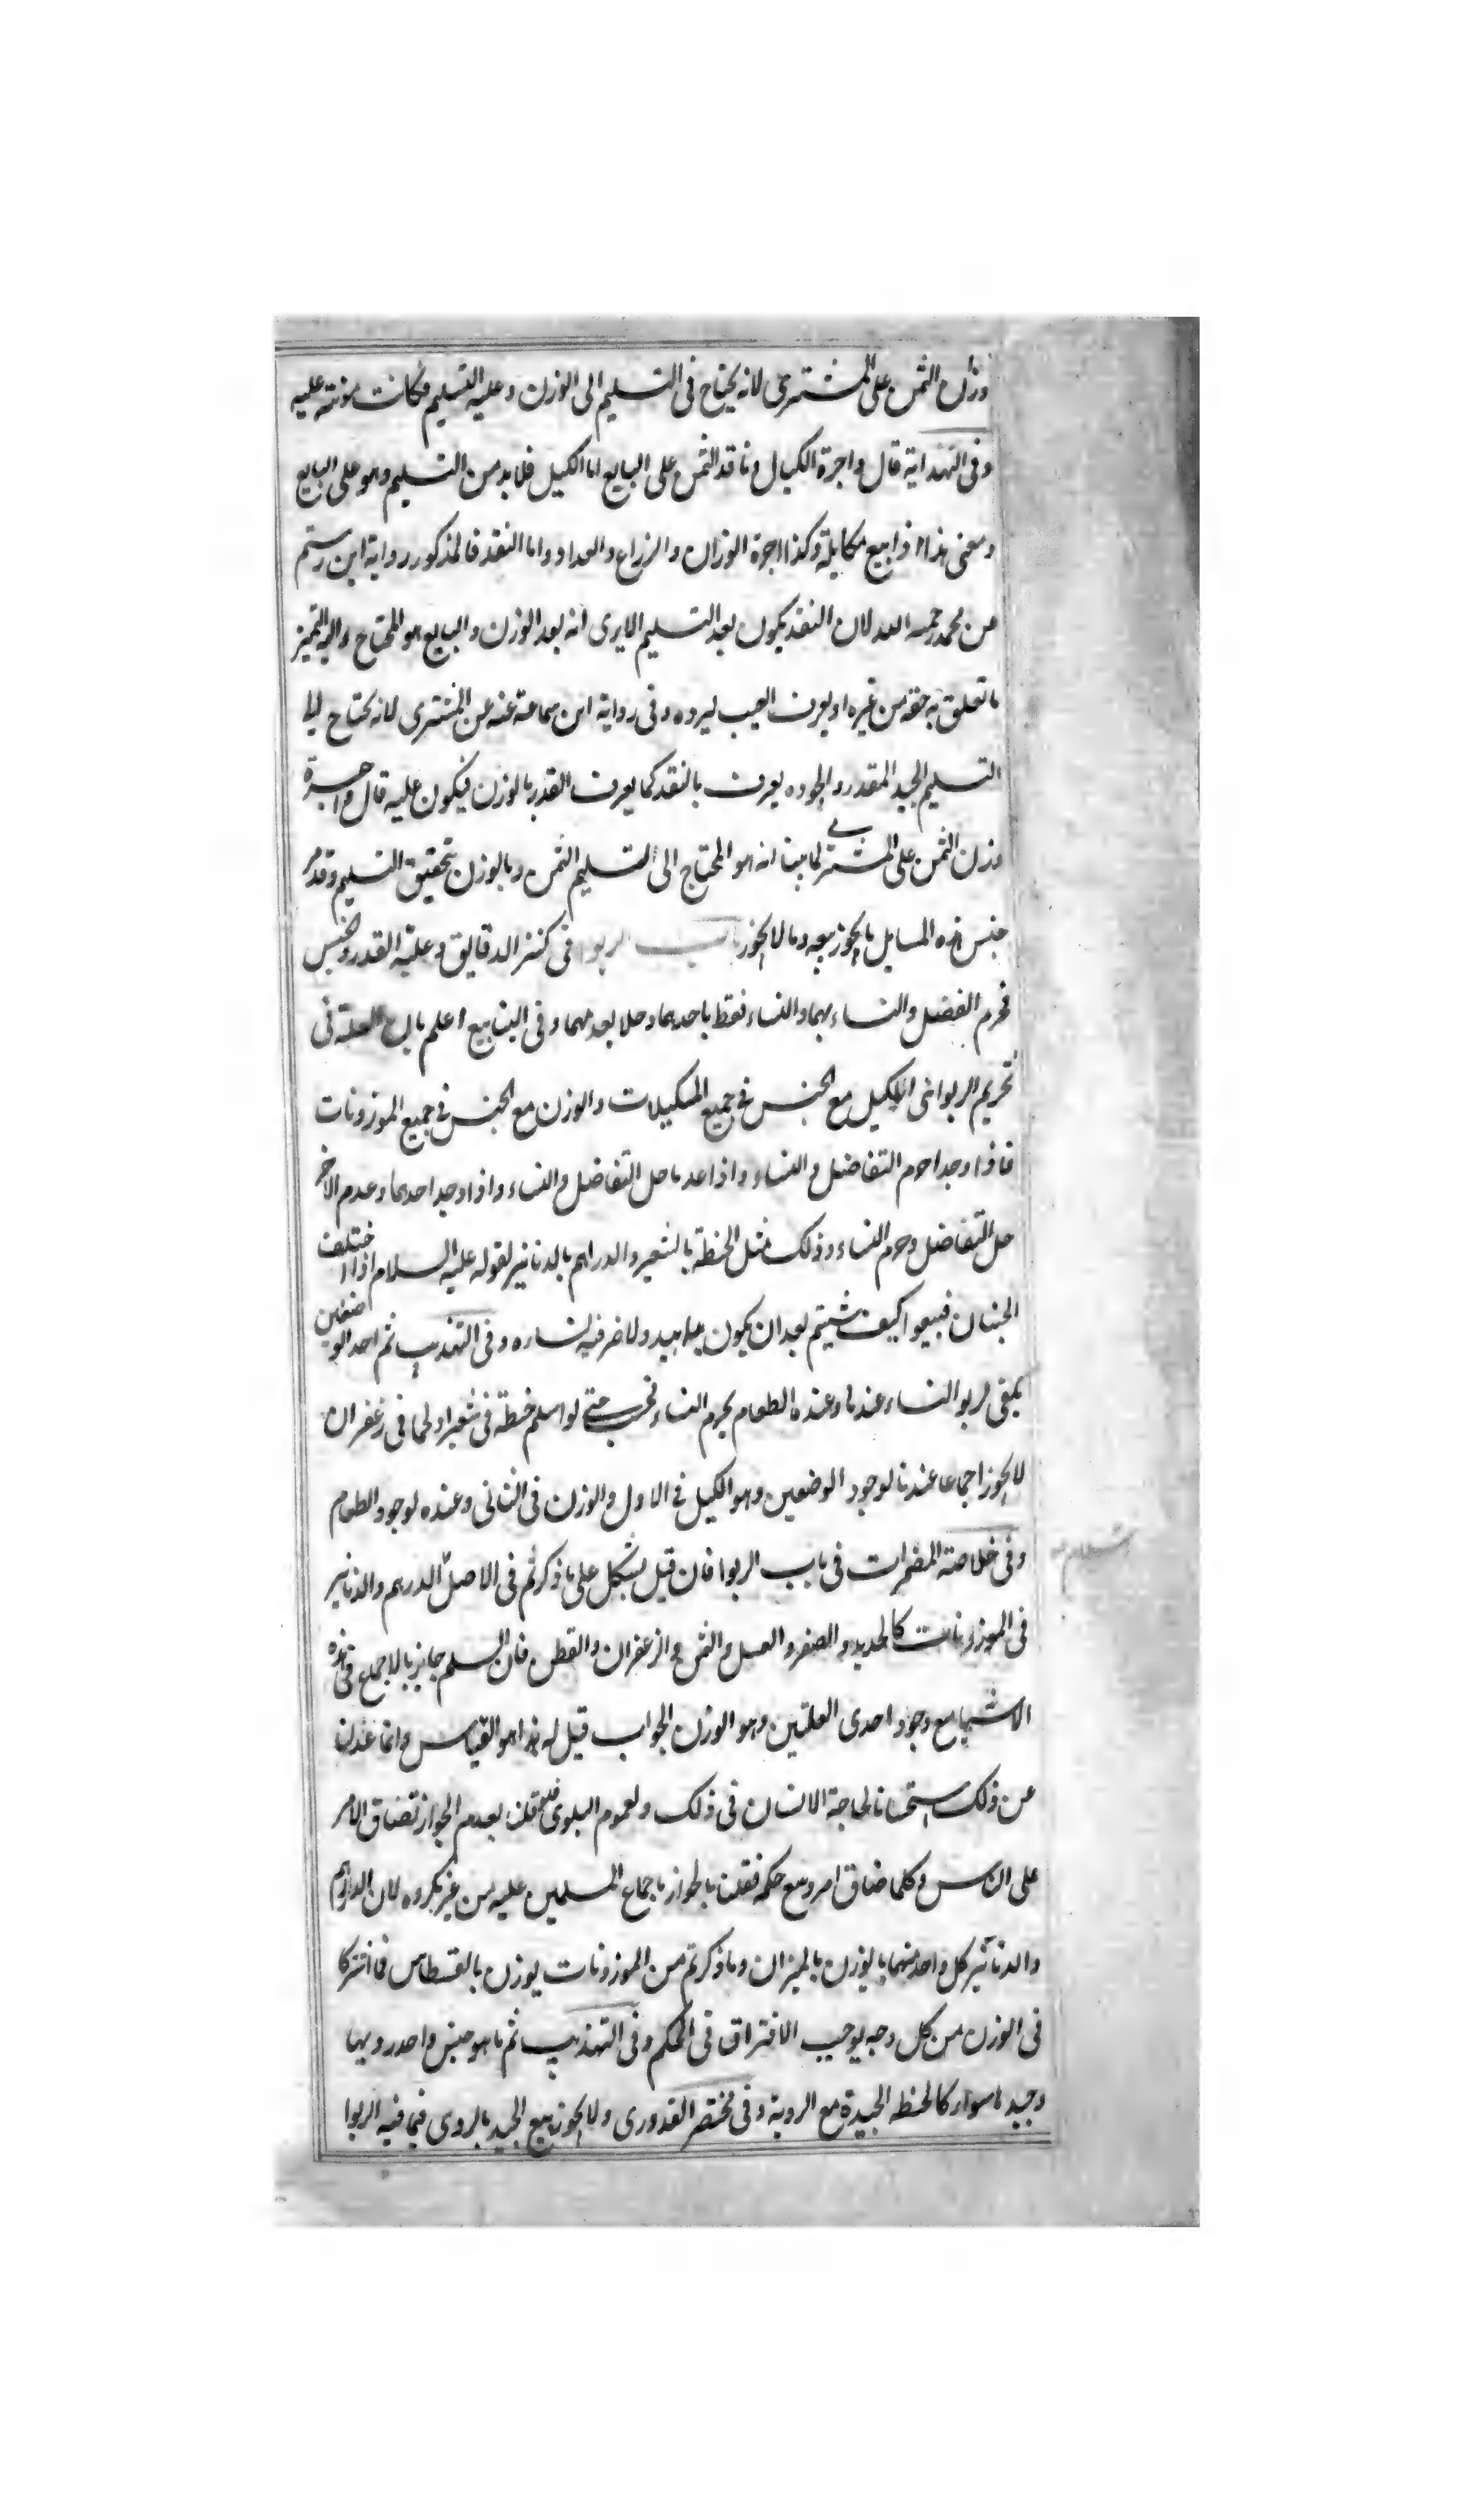 وزان الثمن على المشترى لانه يحتاج فى التسليم الى الوزن وعليه التسليم فكانت مونته عليه
وفى الهداية قال واجرة الكيال وناقد الثمن على البايع اما الكيل فلابد من التسليم وهو على البايع
ومعنى هذا اذا بيع مكايلة وكذا اجرة الوزان والزراع والعداد واما النقد فالمذكور رواية ابن رستم
عن محمد رحمه الله لان النقد يكون بعد التسليم الايرى انه بعد الوزن والبايع هو المحتاج اليه التميز
ما تعلق به حقه من غيره او يعرف العيب ليرده وفى رواية ابن سماعة عنه عن المشترى لانه يحتاج الى
التسليم الجيد المقدر والجوده يعرف بالنقد كما يعرف القدر بالوزن فيكون عليه قال واجرة
وزن الثمن على المشترى لما بينا انه هو المحتاج الى التسليم الثمن وبالوزن تحقيق التسليم وقد مر
جنس هذه المسايل ما يجوز بيعه وما لا يجوز باب الربوا فى كنز الدقايق وعلته القدر والجنس
فحرم الفضل والنساء بهما والنساء فقط باحدهما وحلا بعدمهما وفى الينابيع اعلم بان العلة فى
تحريم الربوا هى الكيل مع الجنس فى جميع المكيلات والوزن مع الجنس فى جميع الموزونات
فاذا وجدا حرم التفاضل والنساء واذا عدما حل التفاضل والنساء واذا وجد احدهما وعدم الاخر
حل التفاضل وحرم النساء وذلك مثل الحنطة بالشعير والدراهم بالدنانير لقوله عليه السلام اذا اختلف
الجنسان فبيعوا كيف شيتم بعد ان يكون يدا بيد ولا خير فيه نساءه وفى التهذيب ثم احد الوصفين
يكفى لربوا النساء عندنا وعنده الطعام يحرم النساء فحسب حتى لو اسلم حنطة فى شعير او لحما فى زعفران
لا يجوز اجماعا عندنا لوجود الوصفين وهو الكيل فى الاول والوزن فى الثانى وعنده لوجود الطعام
وفى خلاصة المضمرات فى باب الربوا فان قيل يشكل على ما ذكرتم فى الاصل الدرهم والدنانير
فى الموزونات كالحديد والصفر والعسل والثمن والزعفران والقطن فان السلم جايز بالاجماع فى هذه
الاشيا مع وجود احدى العلتين وهو الوزن الجواب قيل له هذا هو القياس وانما عدلنا
عن ذلك استحسانا لحاجة الانسان فى ذلك ولعموم البلوى فلو قلنا بعدم الجواز لضاق الامر
على الناس وكلما ضاق امر وسع حكمه فقلنا بالجواز باجماع المسلمين عليه من غير نكروه لان الدراهم
والدنانير كل واحد منهما يوزن بالميزان وما ذكرتم من الموزونات يوزن بالقسطاس فاشتركا
فى الوزن من كل وجه يوجب الافتراق فى الحكم وفى التهذيب ثم ما هو جنس واحد رديها
وجيدها سواء كالحنطه الجيدة مع الردية وفى مختصر القدورى ولا يجوز بيع الجيد بالردى فيما فيه الربوا